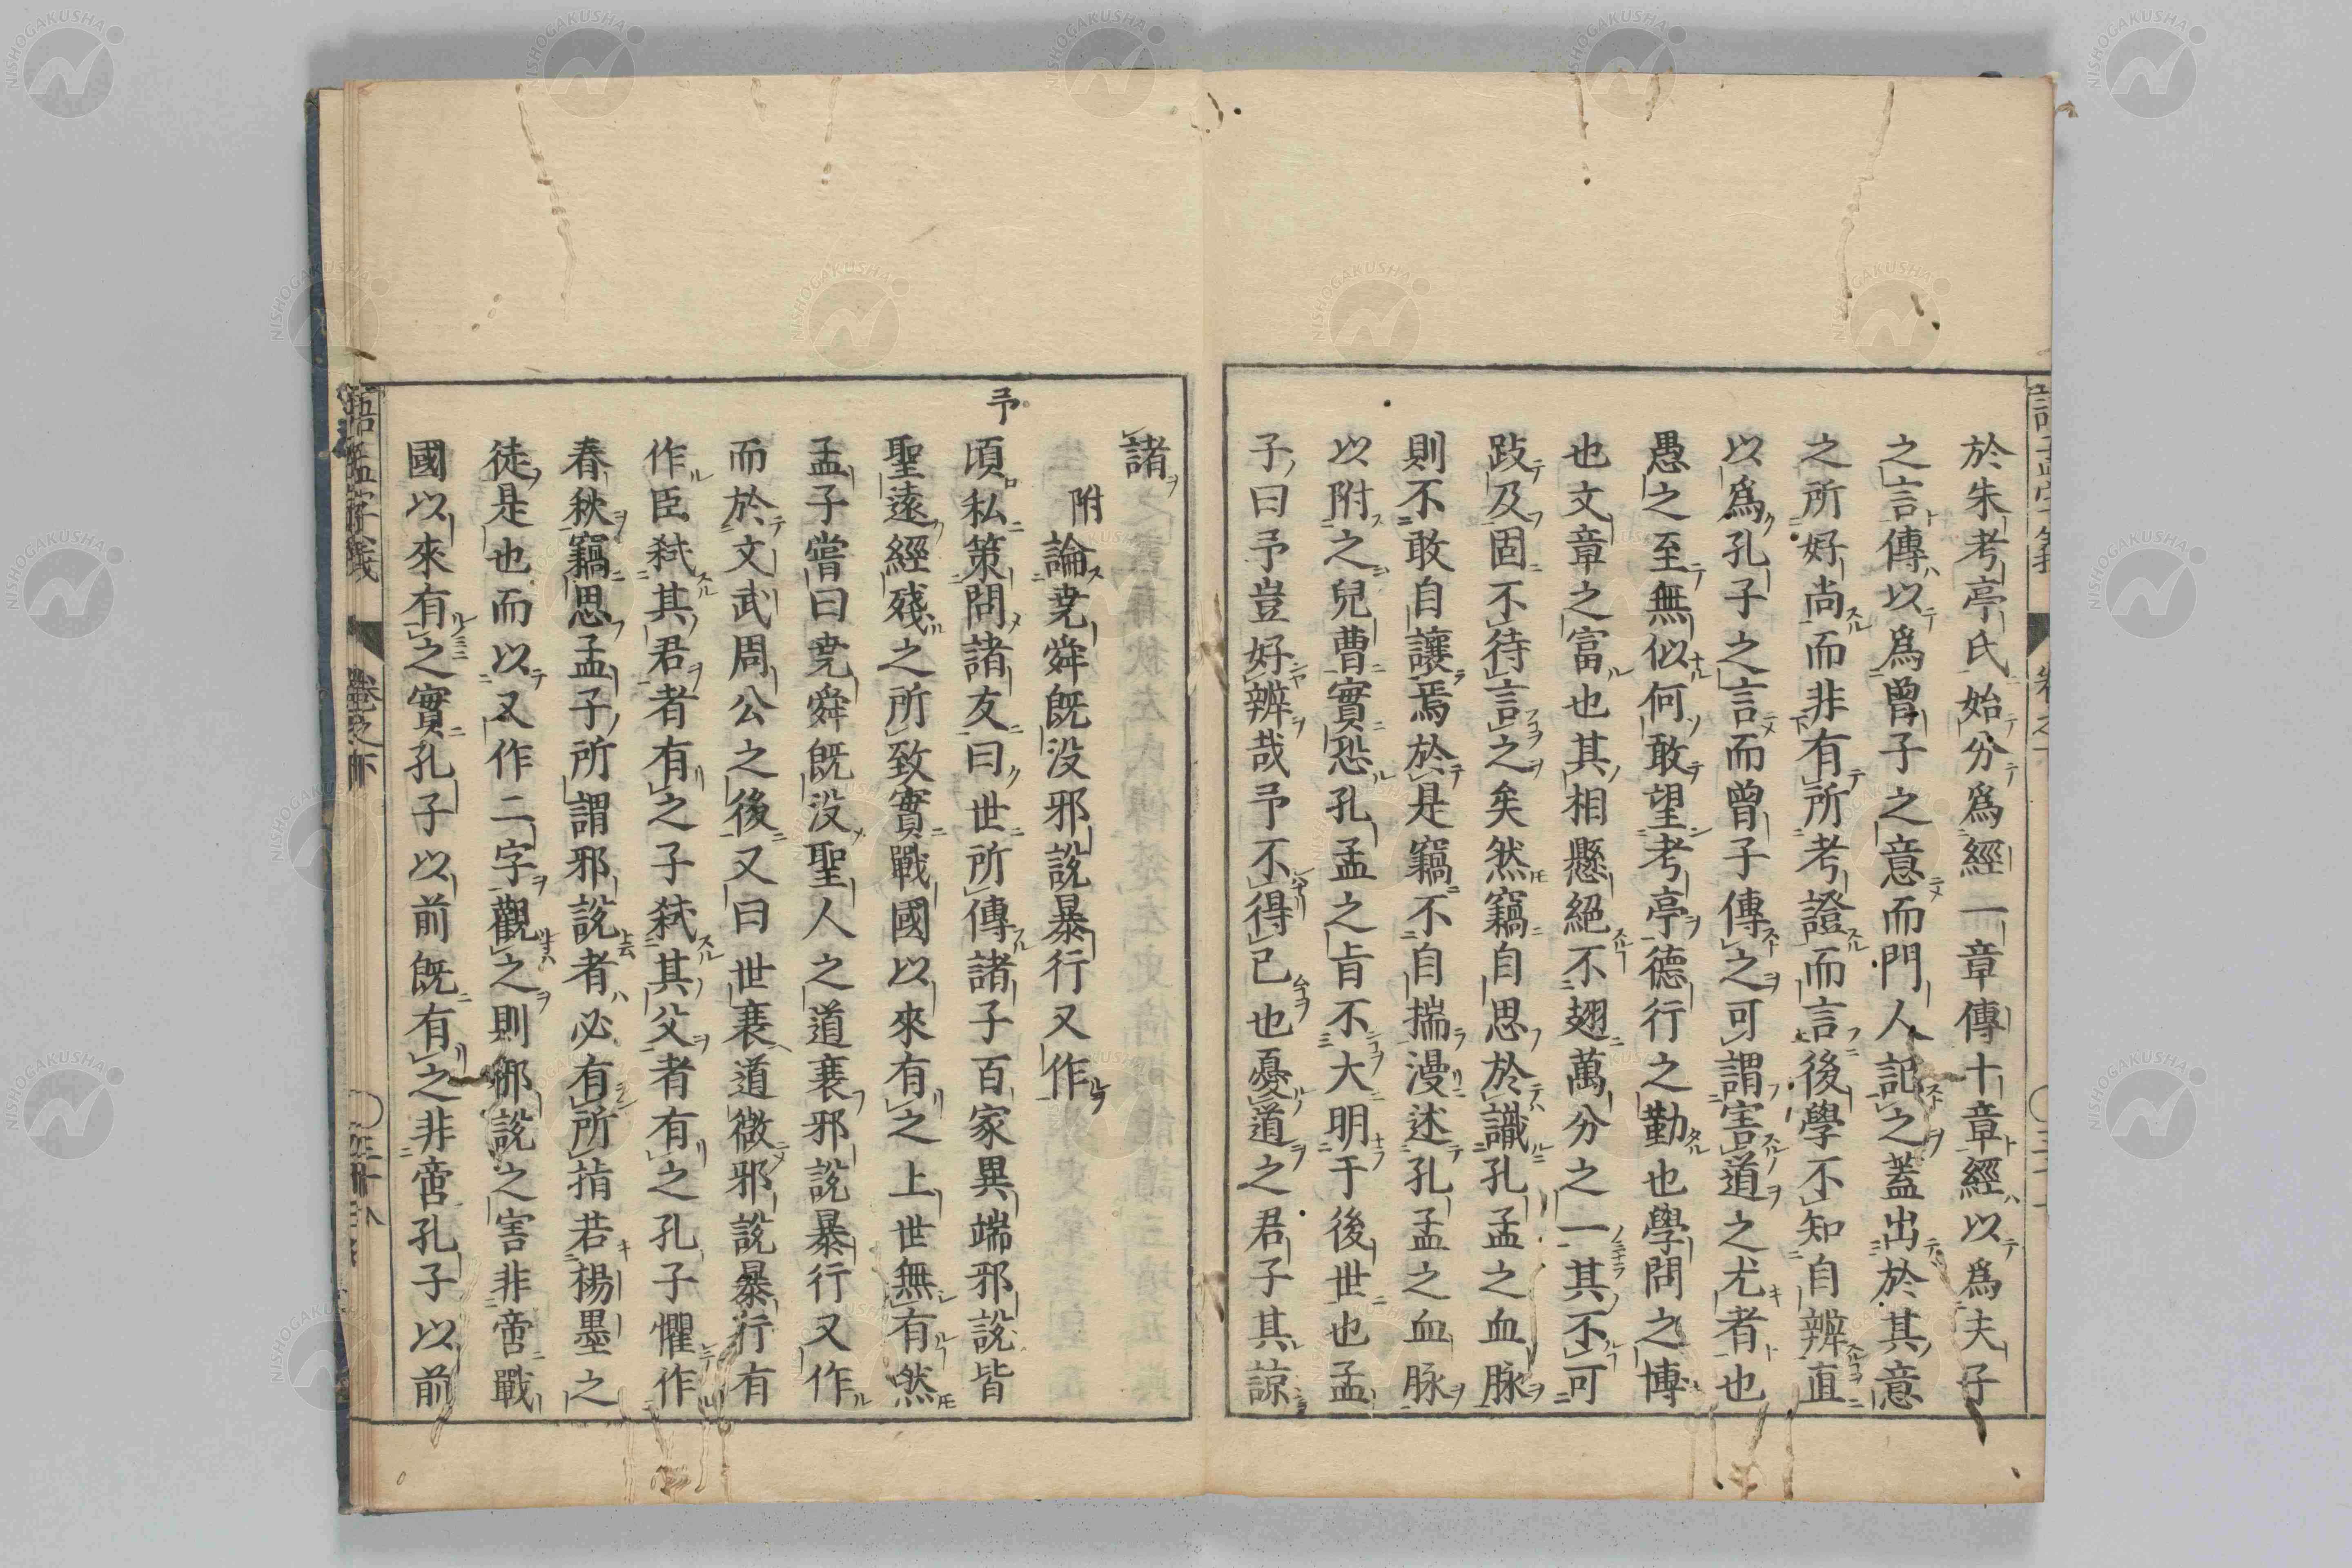 於朱考亭氏始分爲經一章傳十章經以爲夫子
之言傳以爲曾子之意而門人記之蓋出於其意
之所好尚而非有所考證而言後學不知自辨直
以爲孔子之言而曾子傳之可謂害道之尤者也
愚之至無似何敢望考亭德行之勤也學問之博
也文章之富也其相懸絕不翅萬分之一其不可
跂及固不待言之矣然竊自思於識孔孟之血脉
則不敢自讓焉於是竊不自揣漫述孔孟之血脉
以附之兒曹實恐孔孟之旨不大明于後世也孟
子曰予豈好辨哉予不得已也憂道之君子其諒
諸
附論堯舜既没邪說暴行又作
予頃私策問諸友曰世所傳諸子百家異端邪說皆
聖遠經殘之所致實戰國以來有之上世無有然
孟子嘗曰堯舜既没聖人之道衰邪說暴行又作
而於文武周公之後又曰世衰道微邪說暴行有
作臣弑其君者有之子弑其父者有之孔子懼作
春秋竊思孟子所謂邪說者必有所指若楊墨之
徒是也而以又作二字觀之則邪說之害非啻戰
國以來有之實孔子以前既有之非啻孔子以前
語孟字義 卷之下
NISHOGAKUSHA